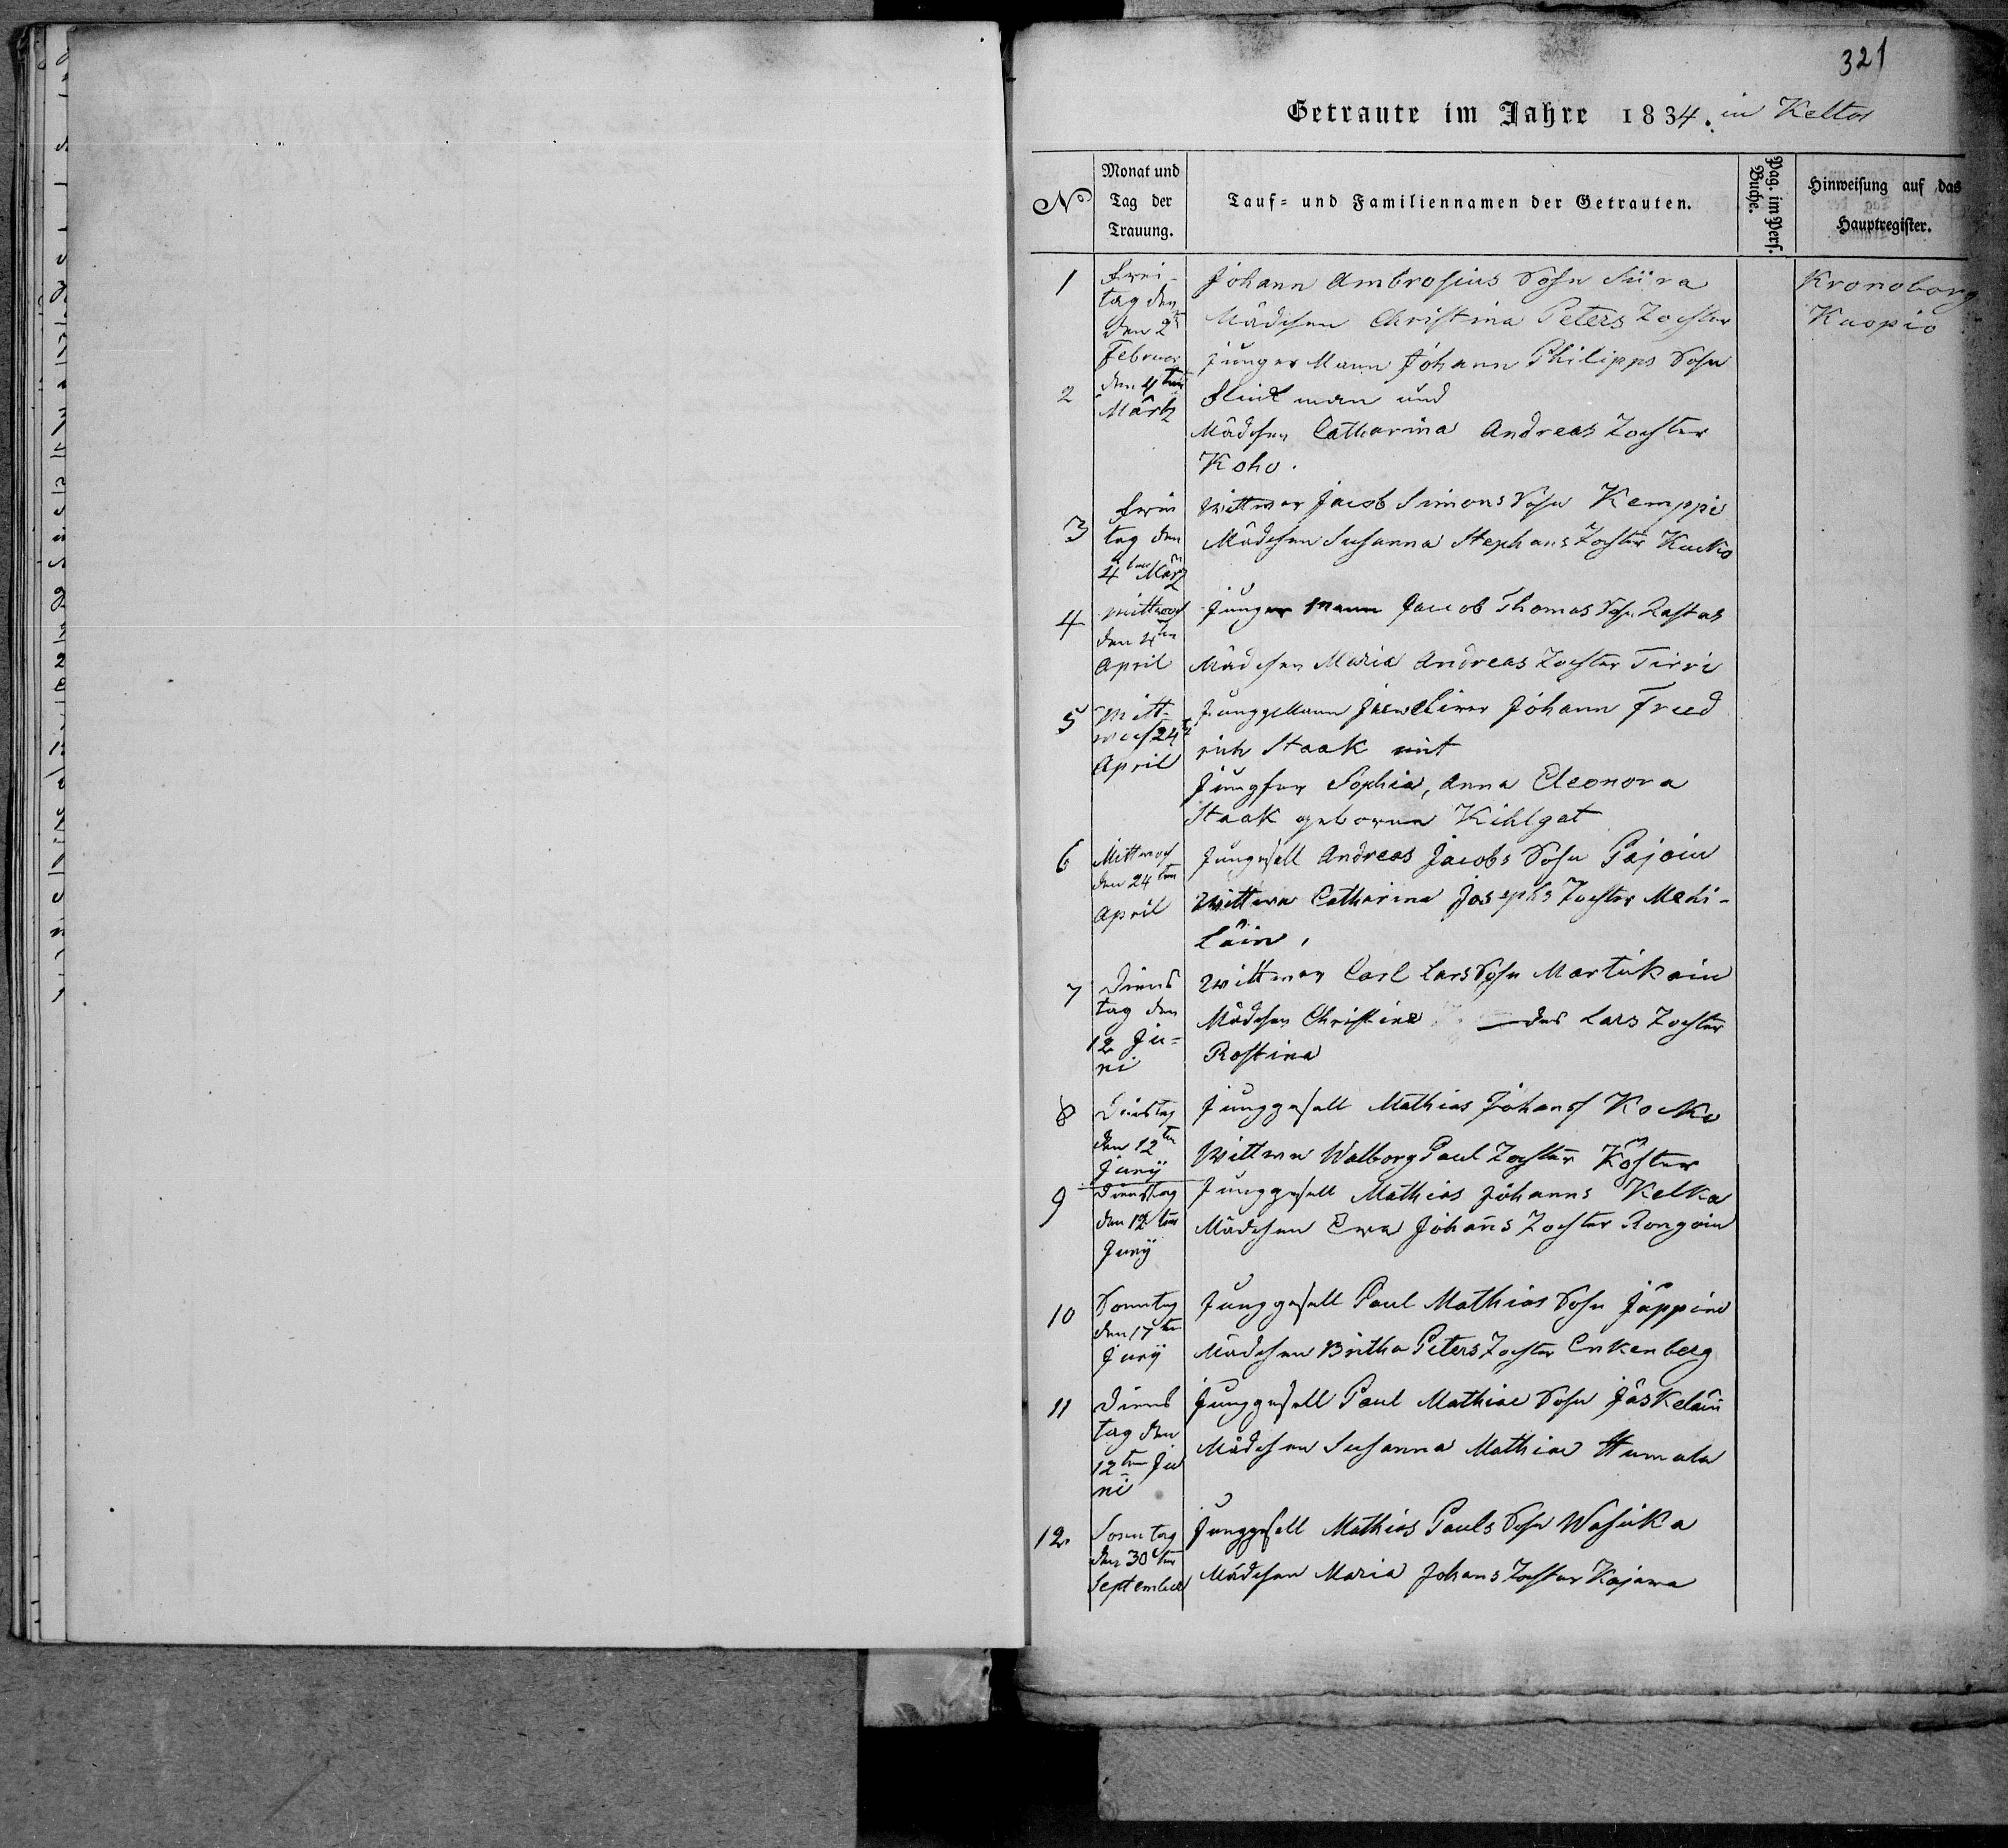 321
Getraute im Jahre 1834. in Keltos
No
Monat und
Tag der
Trauung.
Tauf- und Familiennamen der Getrauten.
Pag. im Pers.
Buche.
Hinweisung auf das
Hauptregister.
1
Frei-
tag den
den 2
Februar
Johann Ambrosius Sohn Siira
Mädchen Christina Peters Tochter
Kronoborg
Kuopio
2
den 4ten
März
junger Mann Johann Philipps Sohn
Flinkman und
Mädchen Catharina Andreas Tochter
Koho.
3
Frei
tag den
4ten März
Wittwer Jacob Simons Sohn Kemppi
Mädchen Susanna Stephans Tochter Kucko
4
Mittwoch
den 4ten
April
Junger Mann Jacob Thomas Sohn Rastas
Mädchen Maria Andreas Tochter Tirri
5
Mitt-
woch 24
April
Junggemann Juwelirer Johann Fried
rich Staak mit
Jungfer Sophia, Anna Eleonora
Staak geborne Kihlgat
6
Mittwoch
den 24ten
April
Junggesell Andreas Jacobs Sohn Pajoin
Wittwe Catharina Josephs Tochter Mehi-
läin,
7
Diens
tag den
12 Ju-
ni
Wittwer Carl Lars Sohn Martikain
Mädchen Christina des Lars Tochter
Rostina
8
Dienstag
den 12ten
Juny
Junggesell Mathias Johans Kocko
Wittwe Walborg Paul Tochter Köster
9
Dienstag
den 12ten
Juny
Junggesell Mathias Johanns Kelka
Mädchen Ewa Johans Tochter Rongoin
10
Sonntag
den 17ten
Juny
Junggesell Paul Mathias Sohn Jäppine
Mädchen Britha Peters Tochter Enkenberg
11
Diens
tag den
12ten Ju
ni
Junggesell Paul Mathias Sohn Jäskeläin
Mädchen Susanna Mathias Humala
12
Sonntag
den 30ten
September
Junggesell Mathias Pauls Sohn Wasika
Mädchen Maria Johans Tochter Kajawa